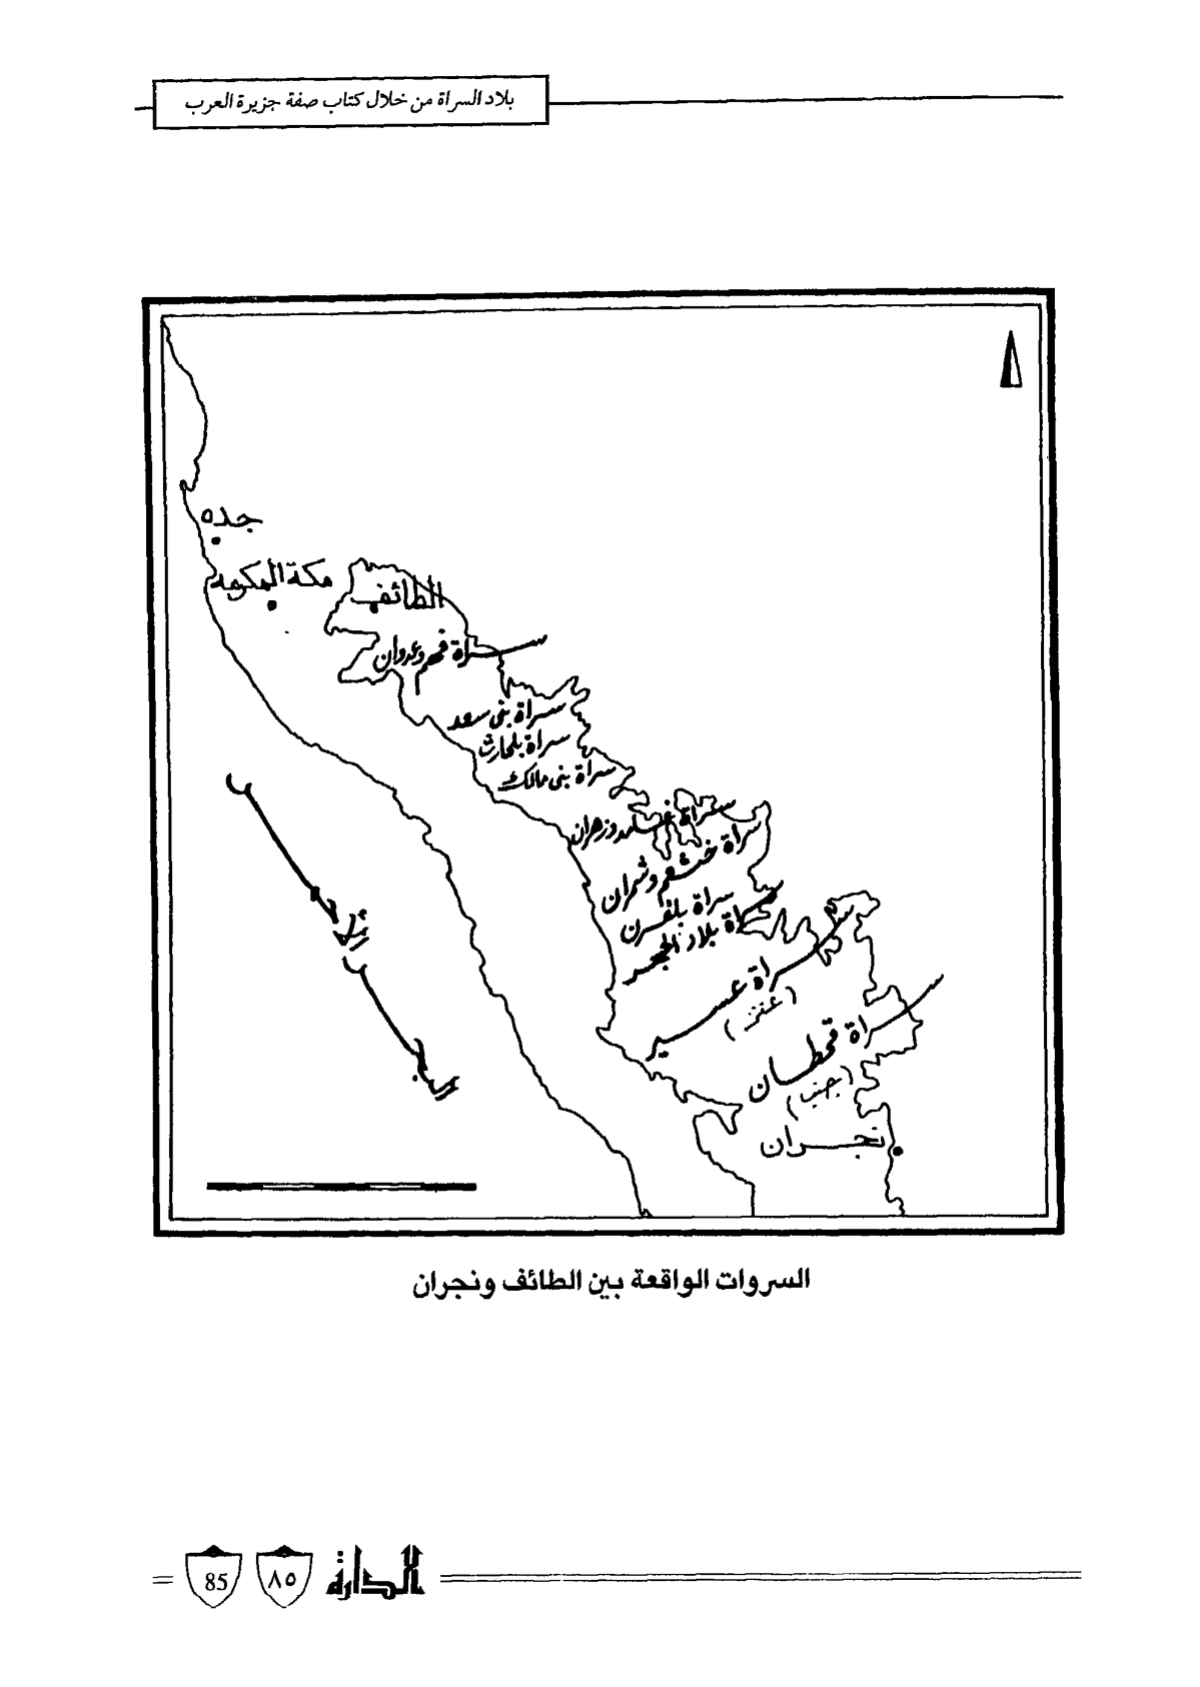 بلاد السراة من خلال كتاب صفة جزيرة العرب
جده
مكة المكرمه
الطائف
سراة فهم وعدوان
سراة بني سعد
سراة بلحارث
سراة بني مالك
سراة غامد وزهران
سراة خثعم وشمران
سراة بلقرن
سراة بلاد الحجر
سراة عسير
(عنز)
سراة قحطان
(جنب)
نجران
السروات الواقعة بين الطائف ونجران
الدارة
٨٥
85